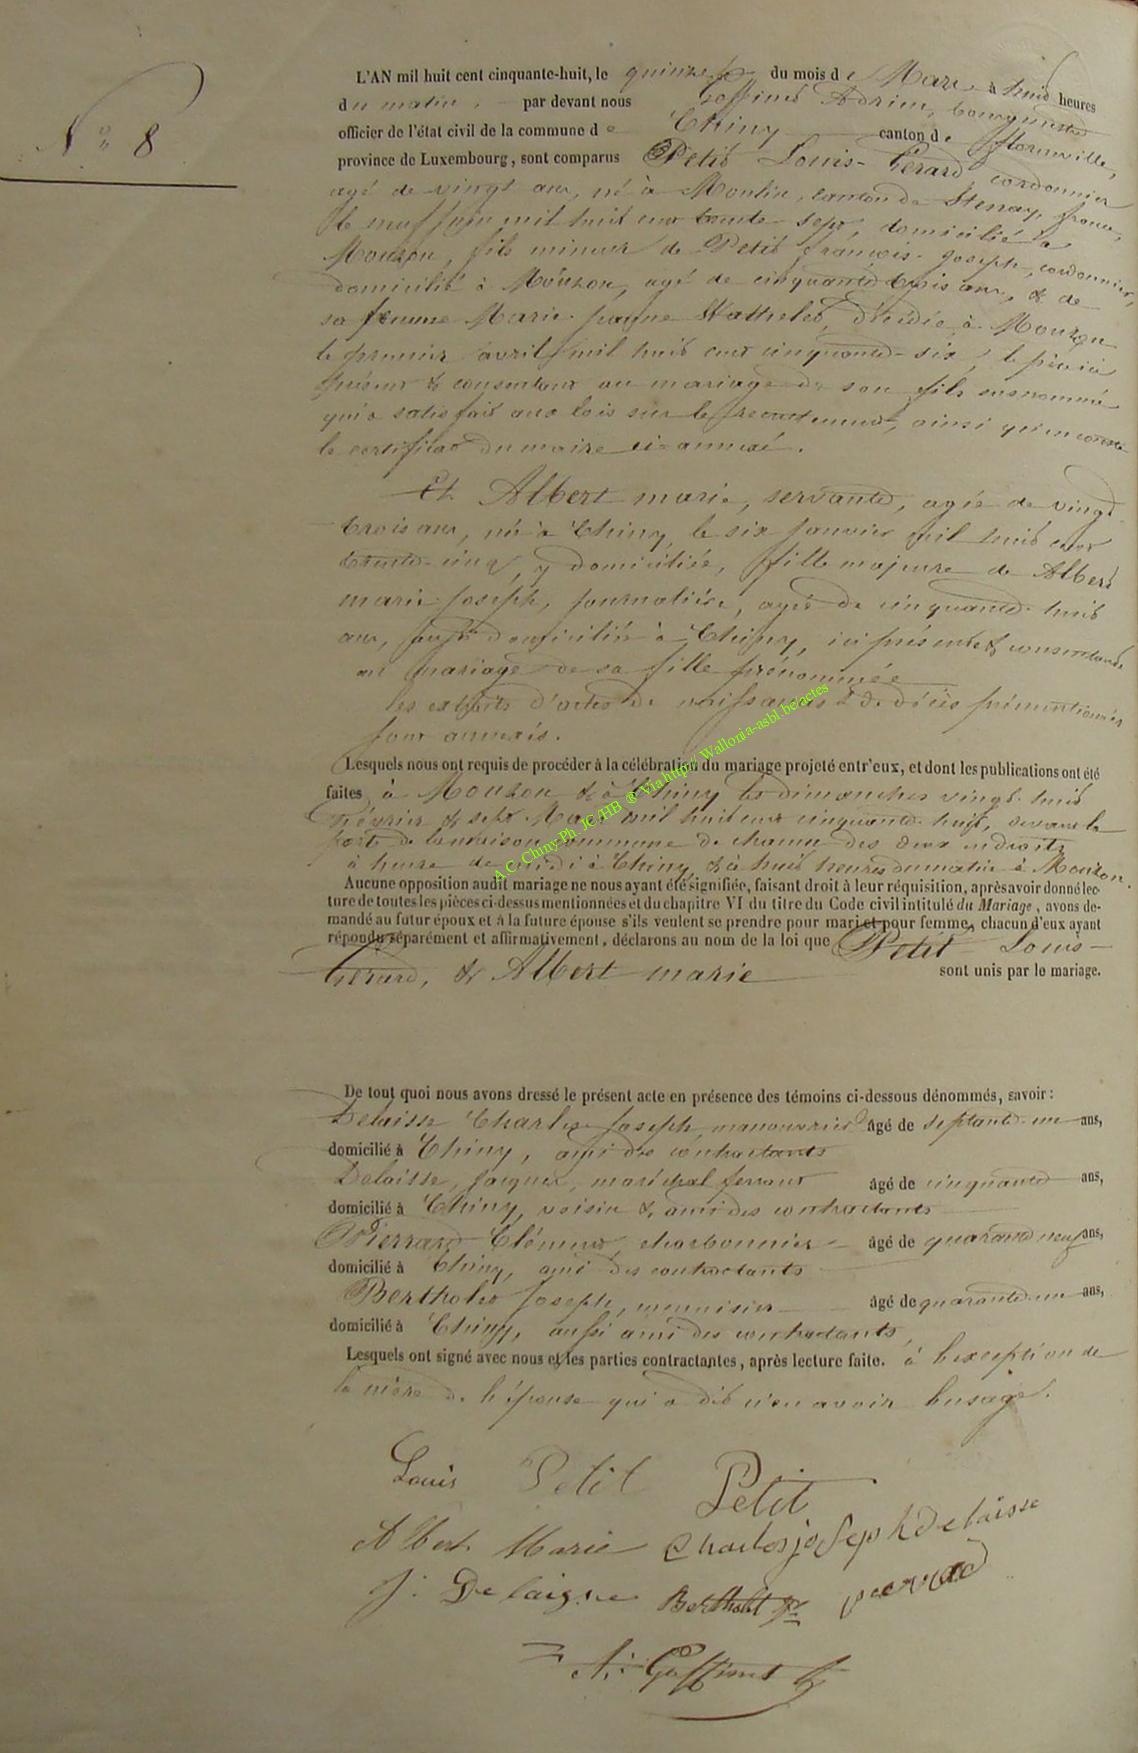 N° 8
L'AN mil huit cent cinquante-huit, le quinze du mois de Mars à huit heures
du matin, par devant nous Goffinet Adrien, bourgmestre
officier de l'état civil de la commune de Chiny canton de florenville,
province de Luxembourg, sont comparus Petit Louis-Gérard cordonnier
agé de vingt ans, né à Moulin, canton de Stenay, france,
le neuf juin mil huit cent trente sept, domicilié à
Mouzon, fils mineur de Petit françois-joseph, cordonnier,
domicilié à Mouzon, agé de cinquante trois ans, & de
sa femme Marie-jeanne Watthelet, décédée à Mouzon
le premier avril mil huit cent cinquante-six, le père ici
présent & consentant au mariage de son fils susnommé
qui a satisfait aux lois sur le recrutement, ainsi qu'en conste
le certificat du maire ci-annexé.
Et Albert marie, servante, agée de vingt
trois ans, née à Chiny, le six janvier mil huit cent
trente-cinq, y domiciliée, fille majeure de Albert
marie-joseph, journalière, agée de cinquante-huit
ans, aussi domiciliée à Chiny, ici présente & consentante
au mariage de sa fille prénommée
les extraits d'actes de naissances & de décès prémentionnés
sont annexés.
Lesquels nous ont requis de procéder à la célébration du mariage projeté entr'eux, et dont les publications ont été
faites à Mouzon & à Chiny les dimanches vingt-huit
février & sept Mars mil huit cent cinquante-huit, devant la
porte de la maison commune de chacun des deux endroits
à heure de midi à Chiny, & à huit heures du matin à Mouzon.
Aucune opposition audit mariage ne nous ayant été signifiée, faisant droit à leur réquisition, après avoir donné lec-
ture de toutes les pièces ci-dessus mentionnées et du chapitre VI du titre du Code civil intitulé du Mariage, avons de-
mandé au futur époux et à la future épouse s'ils veulent se prendre pour mari et pour femme, chacun d'eux ayant
répondu séparément et affirmativement, déclarons au nom de la loi que Petit Louis-
Gérard, & Albert marie sont unis par le mariage.
De tout quoi nous avons dressé le présent acte en présence des témoins ci-dessous dénommés, savoir:
Delaisse Charles joseph, manouvrier âgé de septante-un ans,
domicilié à Chiny, ami des contractants
Delaisse, jacques, maréchal ferrant âgé de cinquante ans,
domicilié à Chiny, voisin & ami des contractants
Pierrard Clément, charbonnier âgé de quarante neuf ans,
domicilié à Chiny, ami des contractants
Bertholet joseph, menuisier âgé de quarante-un ans,
domicilié à Chiny, aussi ami des contractants,
Lesquels ont signé avec nous et les parties contractantes, après lecture faite. à l'exception de
la mère de l'épouse qui a dit n'en avoir l'usage.
Louis Petit Petit
Albert Marie Charles joseph Delaisse
j. Delaisse Bertholet jh pierrard
A. Goffinet
A C Chiny Ph. JC/HB @ Via http:// Wallonia-asbl.be/actes